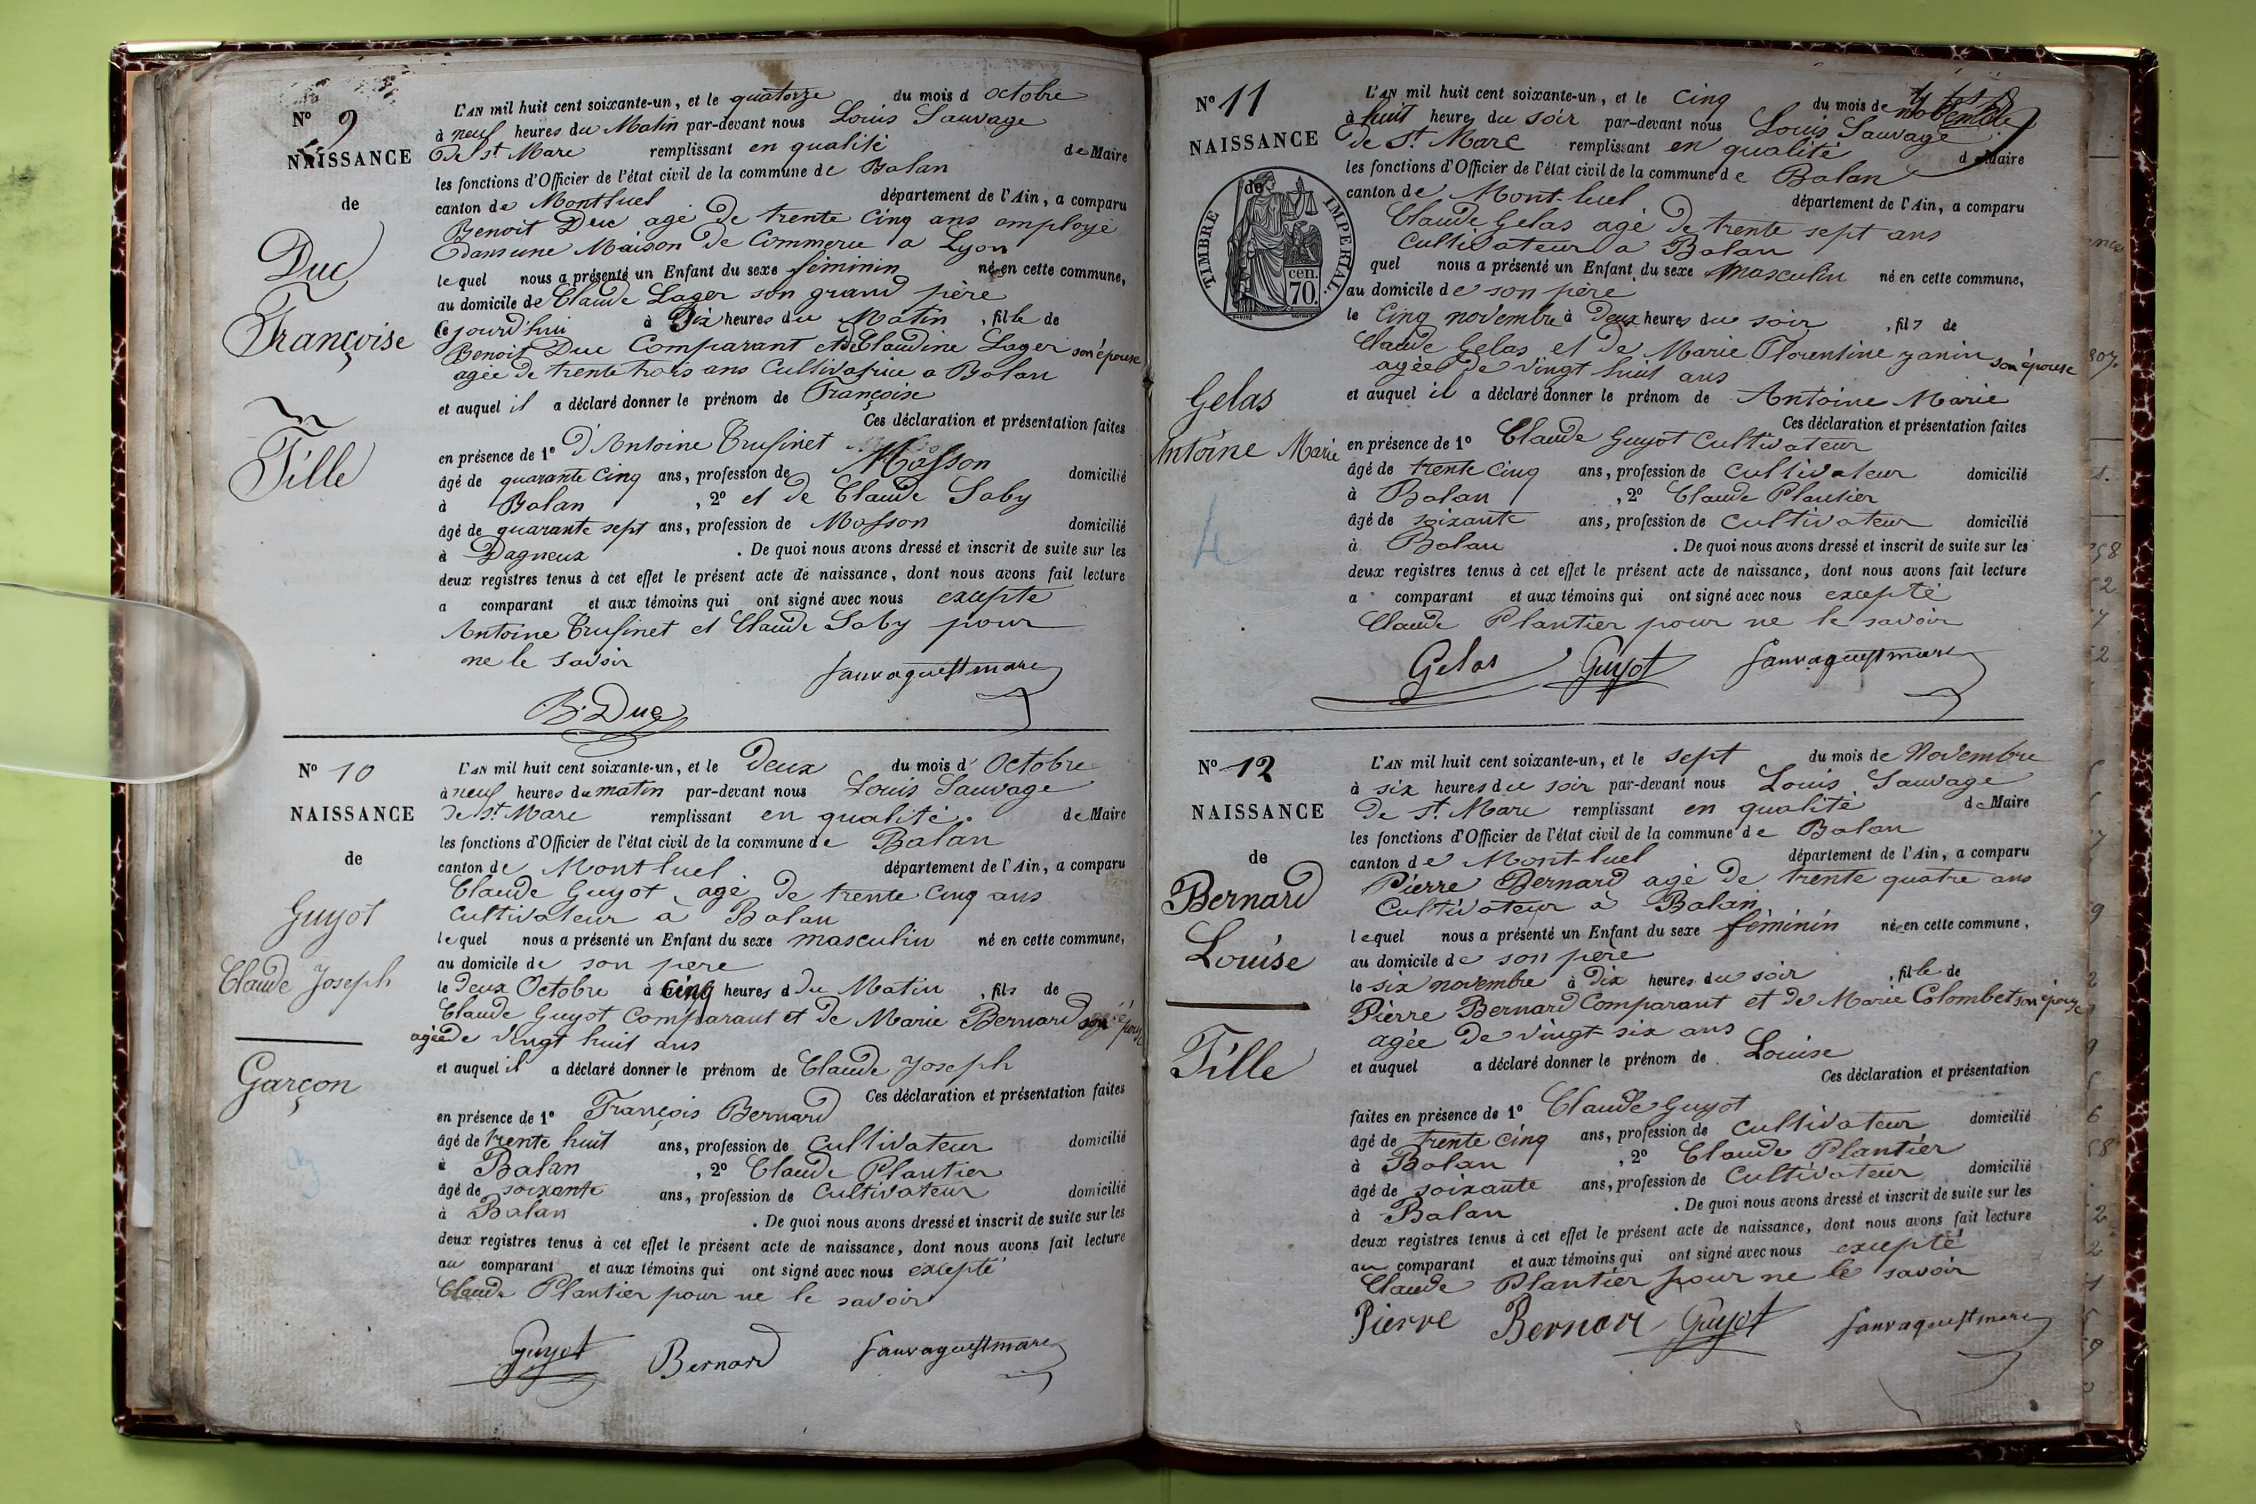 N° 9
NAISSANCE
de
Duc
Françoise
Fille
L'AN mil huit cent soixante-un, et le quatorze du mois d octobre
à neuf heures du Matin par-devant nous Louis Sauvage
De St Marc remplissant en qualité de Maire
les fonctions d'Officier de l'état civil de la commune de Balan
canton de Montluel département de l'Ain, a comparu
Benoit Duc agé de trente cinq ans employé
dans une Maison de Commerce a Lyon
le quel nous a présenté un Enfant du sexe féminin né en cette commune,
au domicile de Claude Lager son grand père
cejourd'hui à Six heures du Matin, fille de
Benoit Duc Comparant et de Claudine Lager son épouse
agée de trente trois ans Cultivatrice a Balan
et auquel il a déclaré donner le prénom de Françoise
Ces déclaration et présentation faites
en présence de 1° d'Antoine Trufinet
âgé de quarante cinq ans, profession de Masson domicilié
à Balan, 2° et de Claude Saby
âgé de quarante sept ans, profession de Masson domicilié
à Dagneux. De quoi nous avons dressé et inscrit de suite sur les
deux registres tenus à cet effet le présent acte de naissance, dont nous avons fait lecture
a comparant et aux témoins qui ont signé avec nous excepté
Antoine Trufinet et Claude Saby pour
ne le savoir
Sauvage St marc
B. Duc
N° 10
NAISSANCE
de
Guyot
Claude Joseph
Garçon
3
L'AN mil huit cent soixante-un, et le Deux du mois d' Octobre
à neuf heures du matin par-devant nous Louis Sauvage
de St Marc remplissant en qualité de Maire
les fonctions d'Officier de l'état civil de la commune de Balan
canton de Montluel département de l'Ain, a comparu
Claude Guyot agé de trente cinq ans
cultivateur à Balan
lequel nous a présenté un Enfant du sexe masculin né en cette commune,
au domicile de son pere
le deux Octobre à cinq heures d du Matin, fils de
Claude Guyot Comparant et de Marie Bernard son épouse
agée de vingt huit ans
et auquel il a déclaré donner le prénom de Claude Joseph
Ces déclaration et présentation faites
en présence de 1° François Bernard
âgé de trente huit ans, profession de Cultivateur domicilié
à Balan, 2° Claude Plantier
âgé de soixante ans, profession de Cultivateur domicilié
à Balan. De quoi nous avons dressé et inscrit de suite sur les
deux registres tenus à cet effet le présent acte de naissance, dont nous avons fait lecture
au comparant et aux témoins qui ont signé avec nous excepté
Claude Plantier pour ne le savoir
Guyot Bernard Sauvage St marc
N° 11
NAISSANCE
de
TIMBRE IMPERIAL.
70. cen.
Gelas
Antoine Marie
4
L'AN mil huit cent soixante-un, et le Cinq du mois de novembre
à huit heure du soir par-devant nous Louis Sauvage
de St. Marc remplissant en qualité d Maire
les fonctions d'Officier de l'état civil de la commune de Balan
canton de Mont-luel département de l'Ain, a comparu
Claude Gelas agé de trente sept ans
Cultivateur a Balan
quel nous a présenté un Enfant du sexe masculin né en cette commune,
au domicile de son père
le Cinq novembre à Deux heures du soir, fils de
Claude Gelas et de Marie Florentine Janin son épouse
agée de vingt huit ans
et auquel il a déclaré donner le prénom de Antoine Marie
Ces déclaration et présentation faites
en présence de 1° Claude Guyot Cultivateur
âgé de trente cinq ans, profession de Cultivateur domicilié
à Balan, 2° Claude Plantier
âgé de soixante ans, profession de cultivateur domicilié
à Balan. De quoi nous avons dressé et inscrit de suite sur les
deux registres tenus à cet effet le présent acte de naissance, dont nous avons fait lecture
a comparant et aux témoins qui ont signé avec nous excepté
Claude Plantier pour ne le savoir
Gelas Guyot Sauvage St marc
N° 12
NAISSANCE
de
Bernard
Louise
Fille
L'AN mil huit cent soixante-un, et le sept du mois de Novembre
à six heures du soir par-devant nous Louis Sauvage
de St. Marc remplissant en qualité de Maire
les fonctions d'Officier de l'état civil de la commune de Balan
canton de Mont-luel département de l'Ain, a comparu
Pierre Bernard agé de trente quatre ans
Cultivateur à Balan
lequel nous a présenté un Enfant du sexe féminin né en cette commune,
au domicile de son père
le six novembre à dix heures du soir, fille de
Pierre Bernard Comparant et de Marie Colombet son épouse
agée de vingt six ans
et auquel a déclaré donner le prénom de Louise
Ces déclaration et présentation
faites en présence de 1° Claude Guyot
âgé de trente cinq ans, profession de cultivateur domicilié
à Balan, 2° Claude Plantier
âgé de soixante ans, profession de Cultivateur domicilié
à Balan. De quoi nous avons dressé et inscrit de suite sur les
deux registres tenus à cet effet le présent acte de naissance, dont nous avons fait lecture
au comparant et aux témoins qui ont signé avec nous excepté
Claude Plantier pour ne le savoir
Pierre Bernard Guyot Sauvage St marc